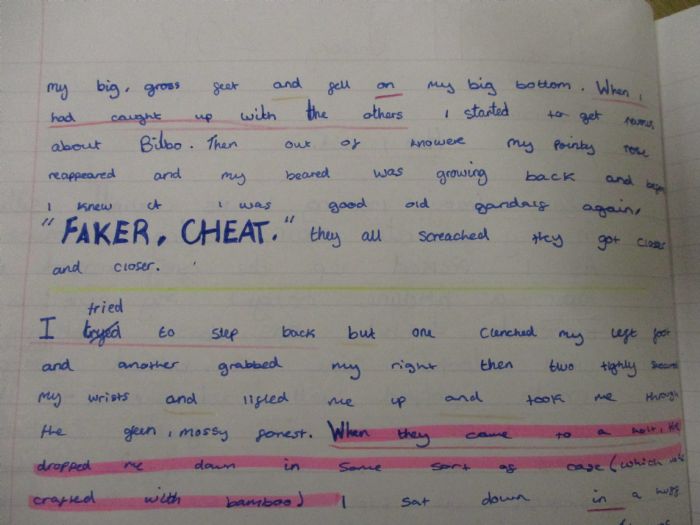 my big, gross feet and fell on my big bottom. When i
had caught up with the others i started to get
about Bilbo. Then out of knowere my pointy nose
reappeared and my beared was growing back and
i knew it i was good old gandalf again,
"FAKER, CHEAT." they all screached they got closer
and closer.
tried
I tryed to step back but one clenched my left foot
and another grabbed my right then two tighly
my wrists and lifted me up and took me through
the geen, mossy forest. When they came to a halt, the
dropped me down in some sort of case (which
crafted with bamboo) I sat down in a